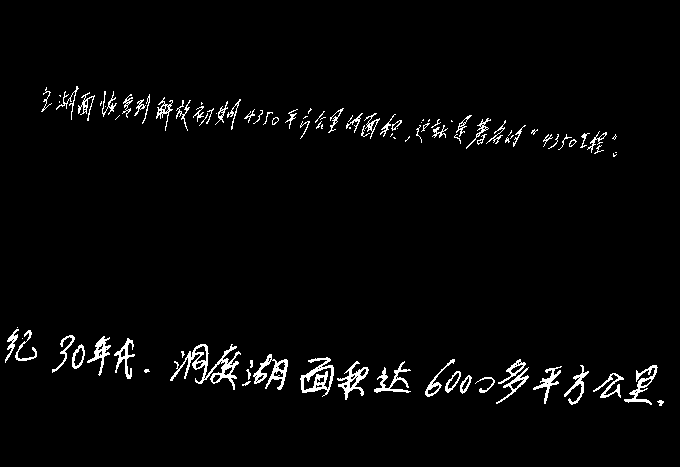 湖面恢复到解放初期4350平方公里的面积,这就是著名的"4350工程"。
纪30年代.洞庭湖面积达6000多平方公里.